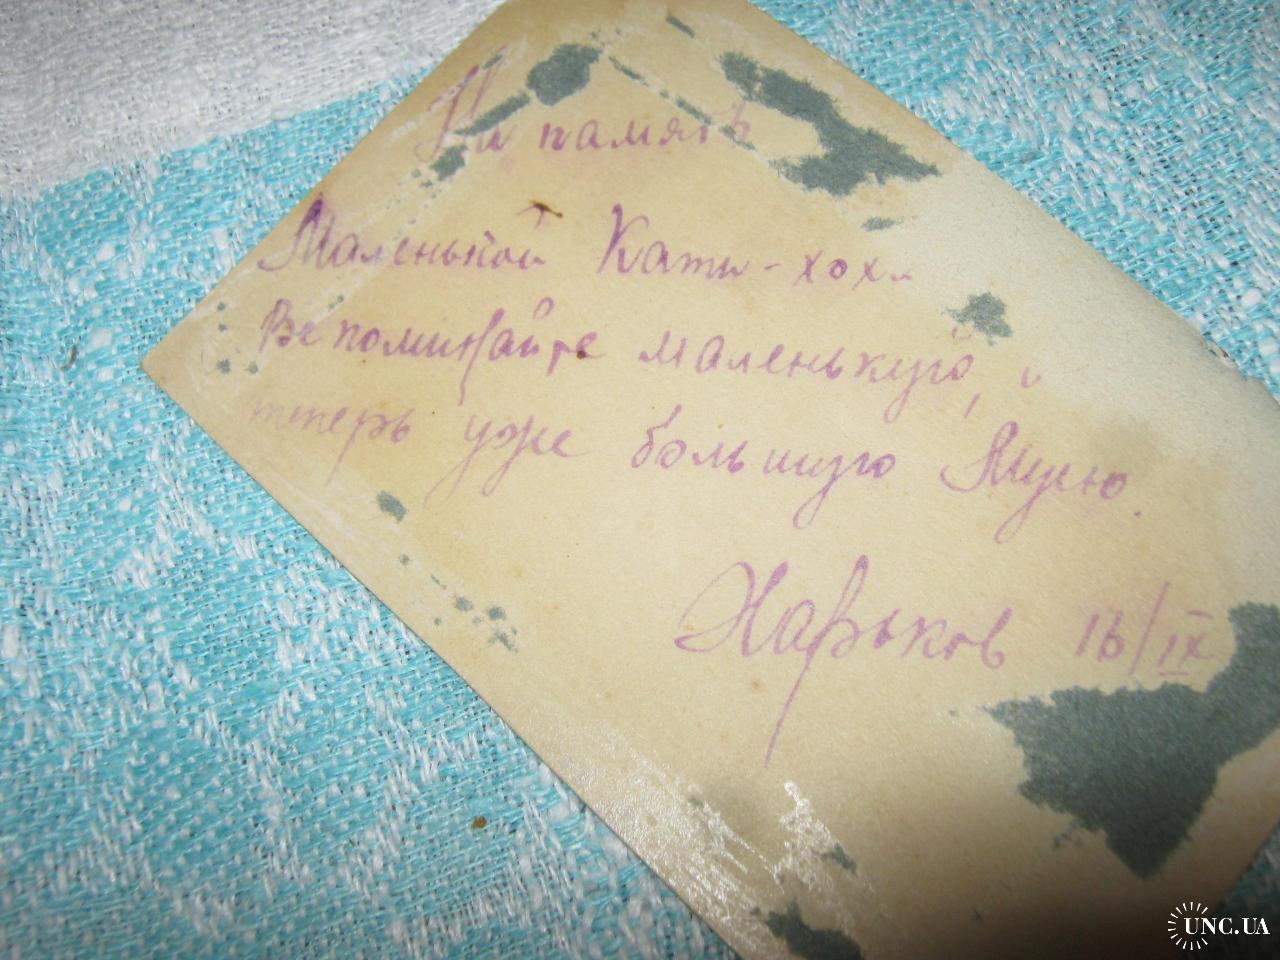 На память
Маленькой Кати - хох
Вспоминайте маленькую, и
теперь уже большую Мусю.
Харьков 16/IX
UNC.UA